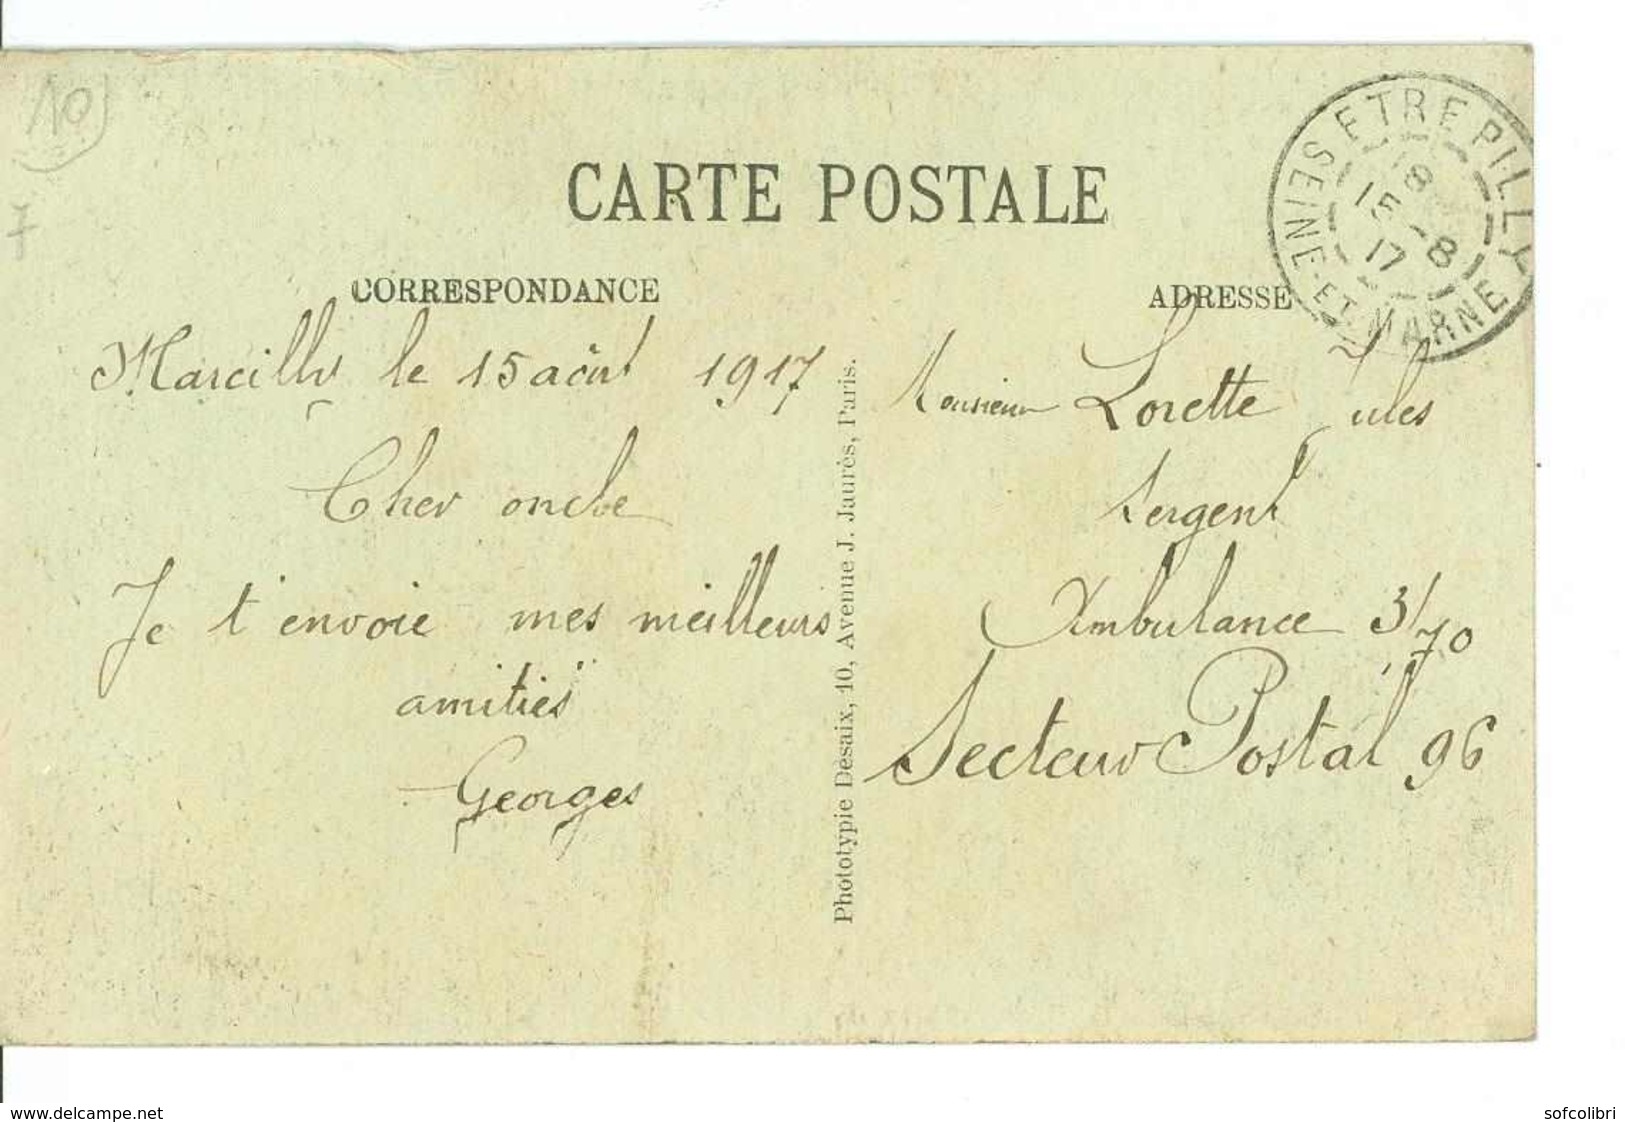 10
7
CARTE POSTALE
ETREPILLY
SEINE-ET-MARNE
18
15-8
17
CORRESPONDANCE
Marcilly le 15 août 1917
Cher oncle
Je t'envoie mes meilleurs
amitiés
Georges
Phototypie Desaix, 10, Avenue J. Jaurès, Paris.
ADRESSE
Monsieur Lorette Jules
Sergent
Ambulance 3/70
Secteur Postal 96
www.delcampe.net
sofcolibri